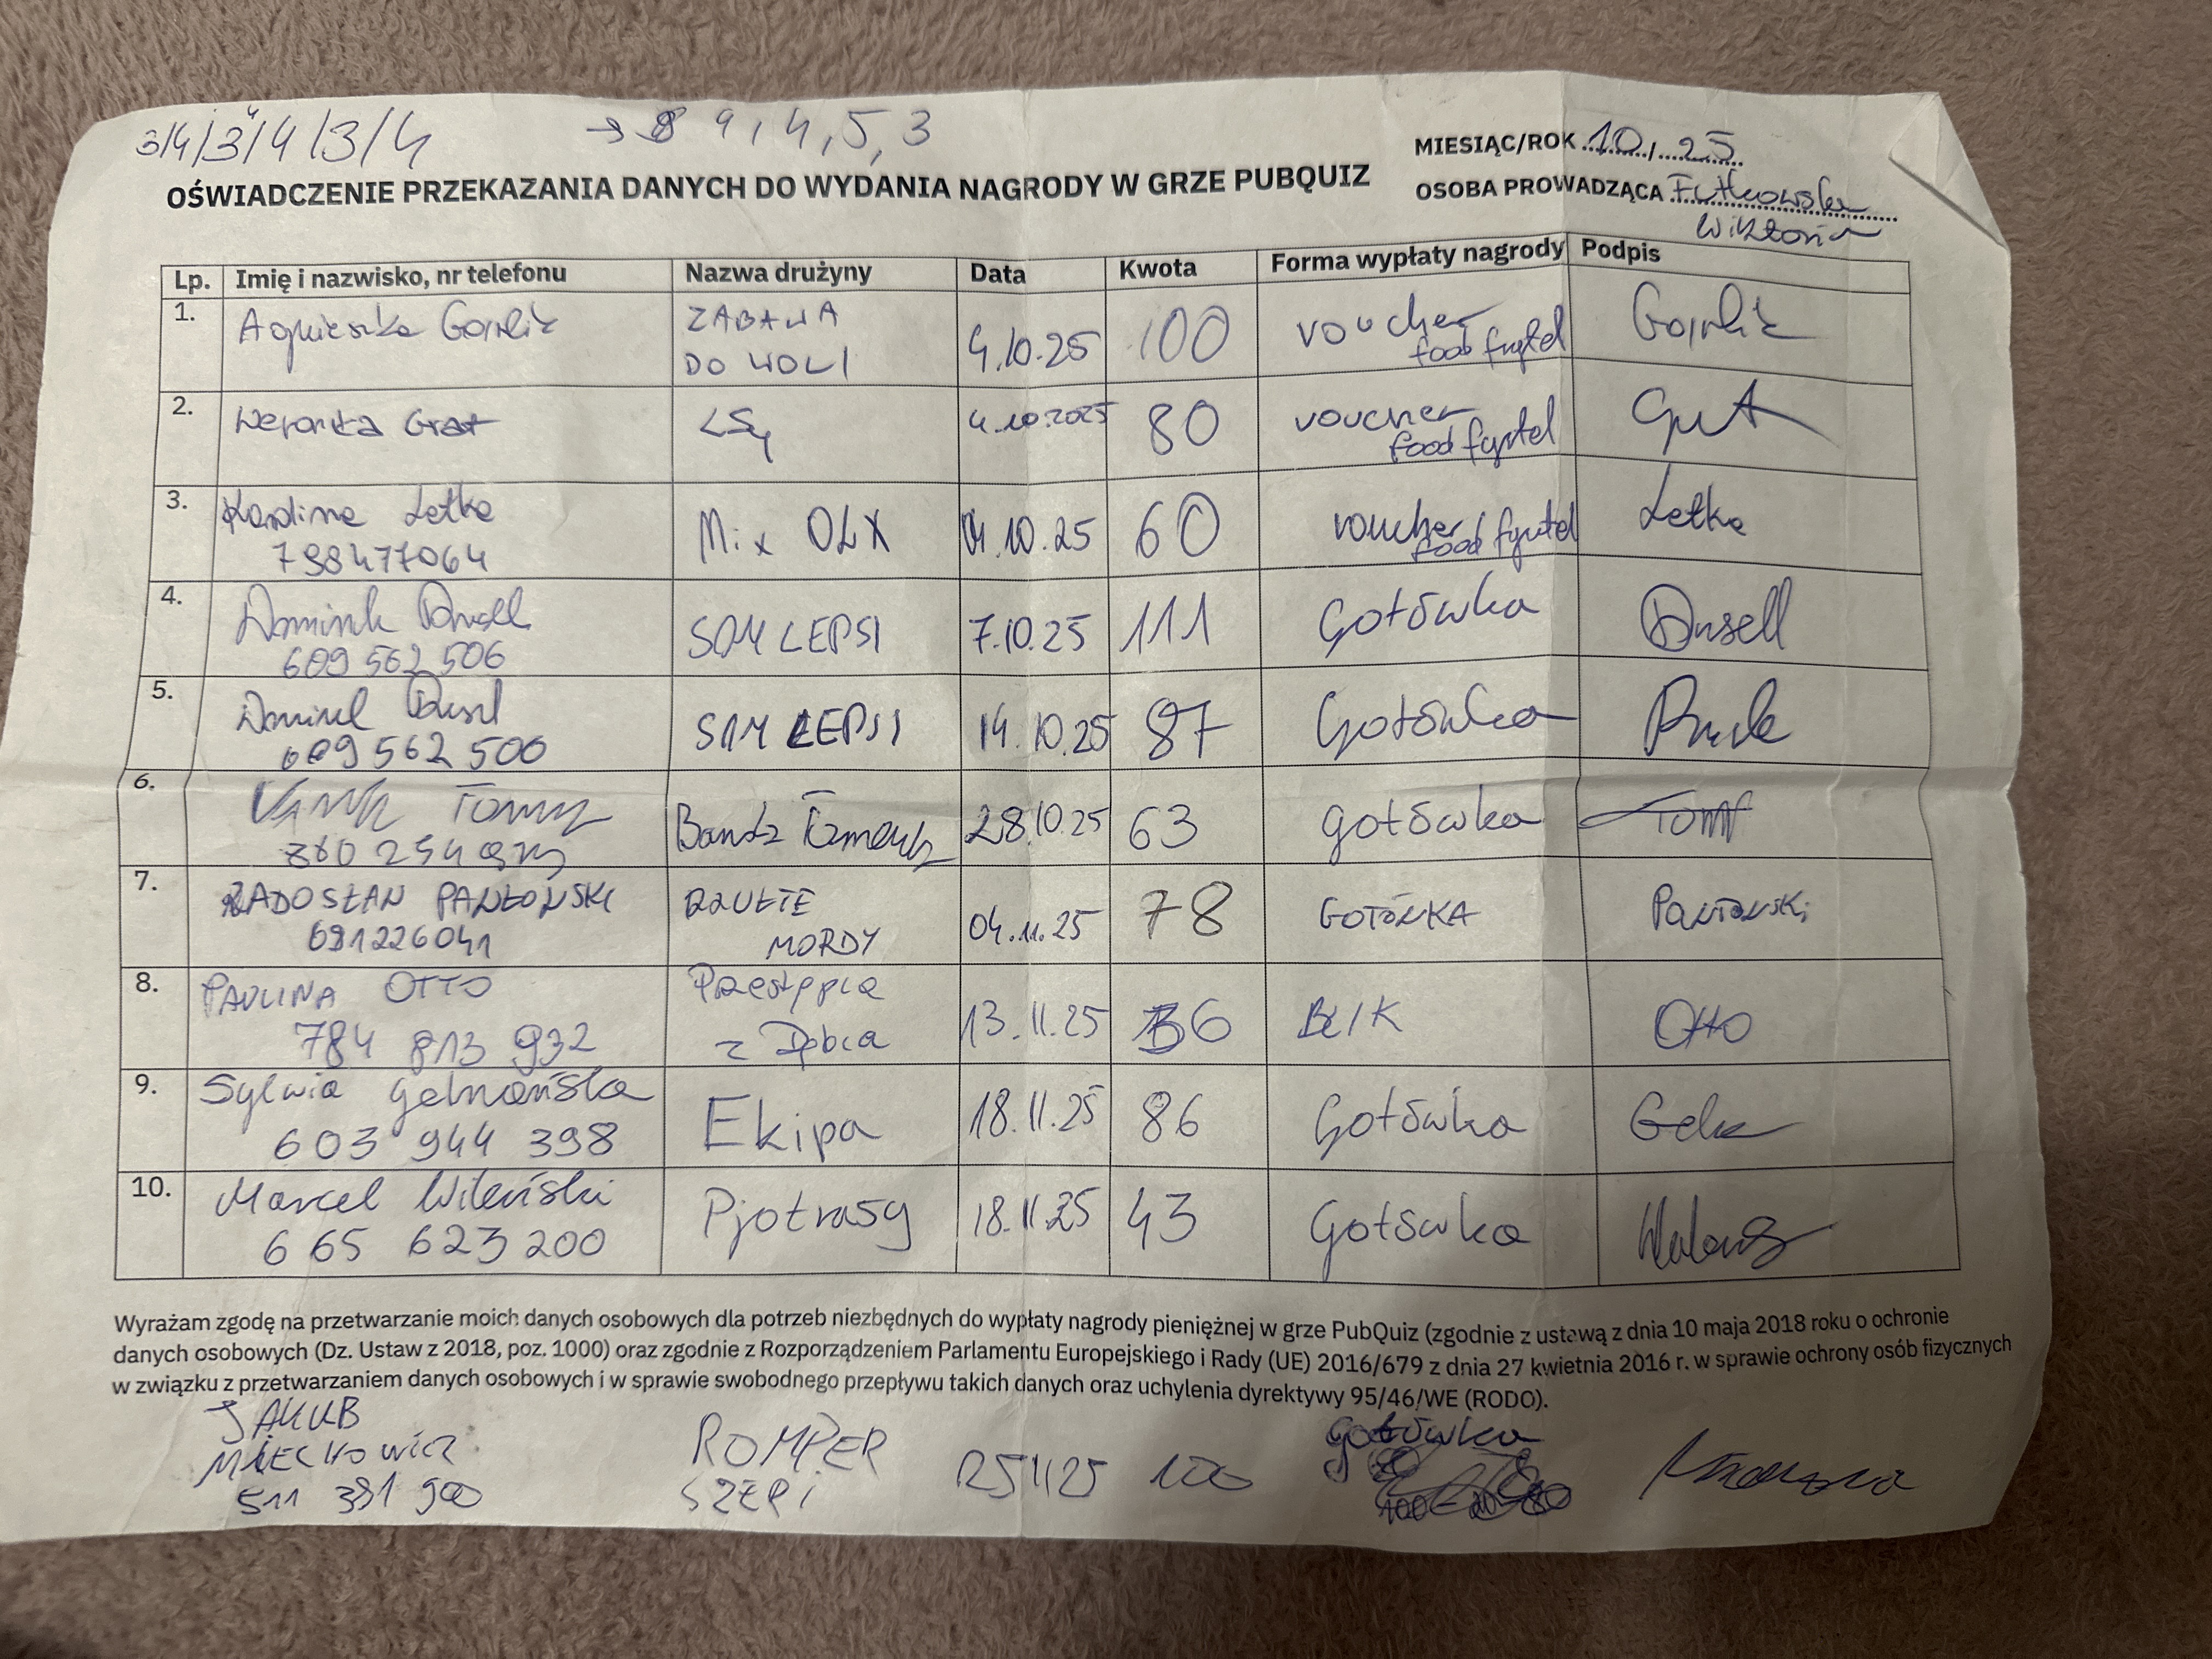 3/4/3/4/3/4
→ 8 9, 4, 5, 3
MIESIĄC/ROK 10 / 25
OŚWIADCZENIE PRZEKAZANIA DANYCH DO WYDANIA NAGRODY W GRZE PUBQUIZ
OSOBA PROWADZĄCA Futkowska
Wiktoria
Lp. Imię i nazwisko, nr telefonu Nazwa drużyny Data Kwota Forma wypłaty nagrody Podpis
1. Agnieszka ZABAWA
DO WOLI 4.10.25 100 voucher
food fyrtel
2. Weronika 4.10.2025 80 voucher
food fyrtel
3. Karolina Letka Mix OLX 04.10.25 60 voucher Letka
798477064 food fyrtel
4. Dominik SAM LEPSI 7.10.25 111 Gotówka
609 562 506
5. SAM LEPSI 14.10.25 87 Gotówka
609 562 500
6. 28.10.25 63 gotówka
7. RADOSŁAW PAWŁOWSKI RZUŁTE 04.11.25 78 GOTÓWKA PAWŁOWSKI
691226041 MORDY
8. PAULINA OTTO z Dębca 13.11.25 36 BLIK Otto
784 813 932
9. Sylwia Ekipa 18.11.25 86 Gotówka
603 944 398
10. Marcel Wileński Pjotrasy 18.11.25 43 Gotówka
665 623 200
Wyrażam zgodę na przetwarzanie moich danych osobowych dla potrzeb niezbędnych do wypłaty nagrody pieniężnej w grze PubQuiz (zgodnie z ustawą z dnia 10 maja 2018 roku o ochronie
danych osobowych (Dz. Ustaw z 2018, poz. 1000) oraz zgodnie z Rozporządzeniem Parlamentu Europejskiego i Rady (UE) 2016/679 z dnia 27 kwietnia 2016 r. w sprawie ochrony osób fizycznych
w związku z przetwarzaniem danych osobowych i w sprawie swobodnego przepływu takich danych oraz uchylenia dyrektywy 95/46/WE (RODO).
JAKUB ROMPER 251125 100 gotówka
MIECHOWICZ SZEPI
511 391 900